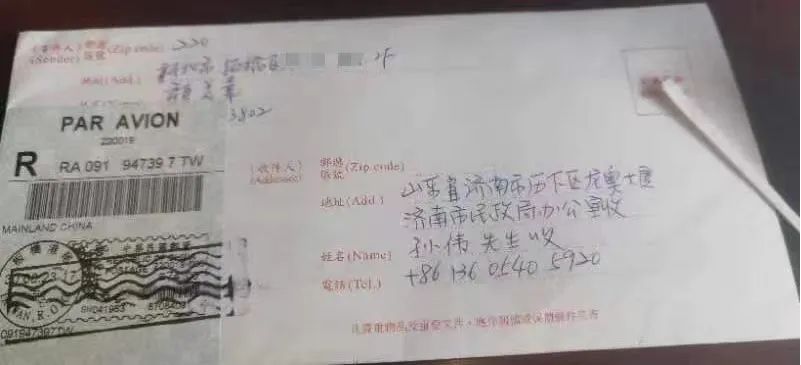 (寄件人) 郵遞 (Zip code) 220
(Sender) 區號
地址(Add.) 新北市 板橋區 2F
3802
PAR AVION
220019
R RA 091 94739 7 TW
MAINLAND CHINA
(收件人) 郵遞 (Zip code)
(Addressee) 區號
地址(Add.) 山东省济南市历下区龙奥大厦
济南市民政局办公室收
姓名(Name) 孙伟 先生收
電話(Tel.) +86 136 0540 5920
091947397TW